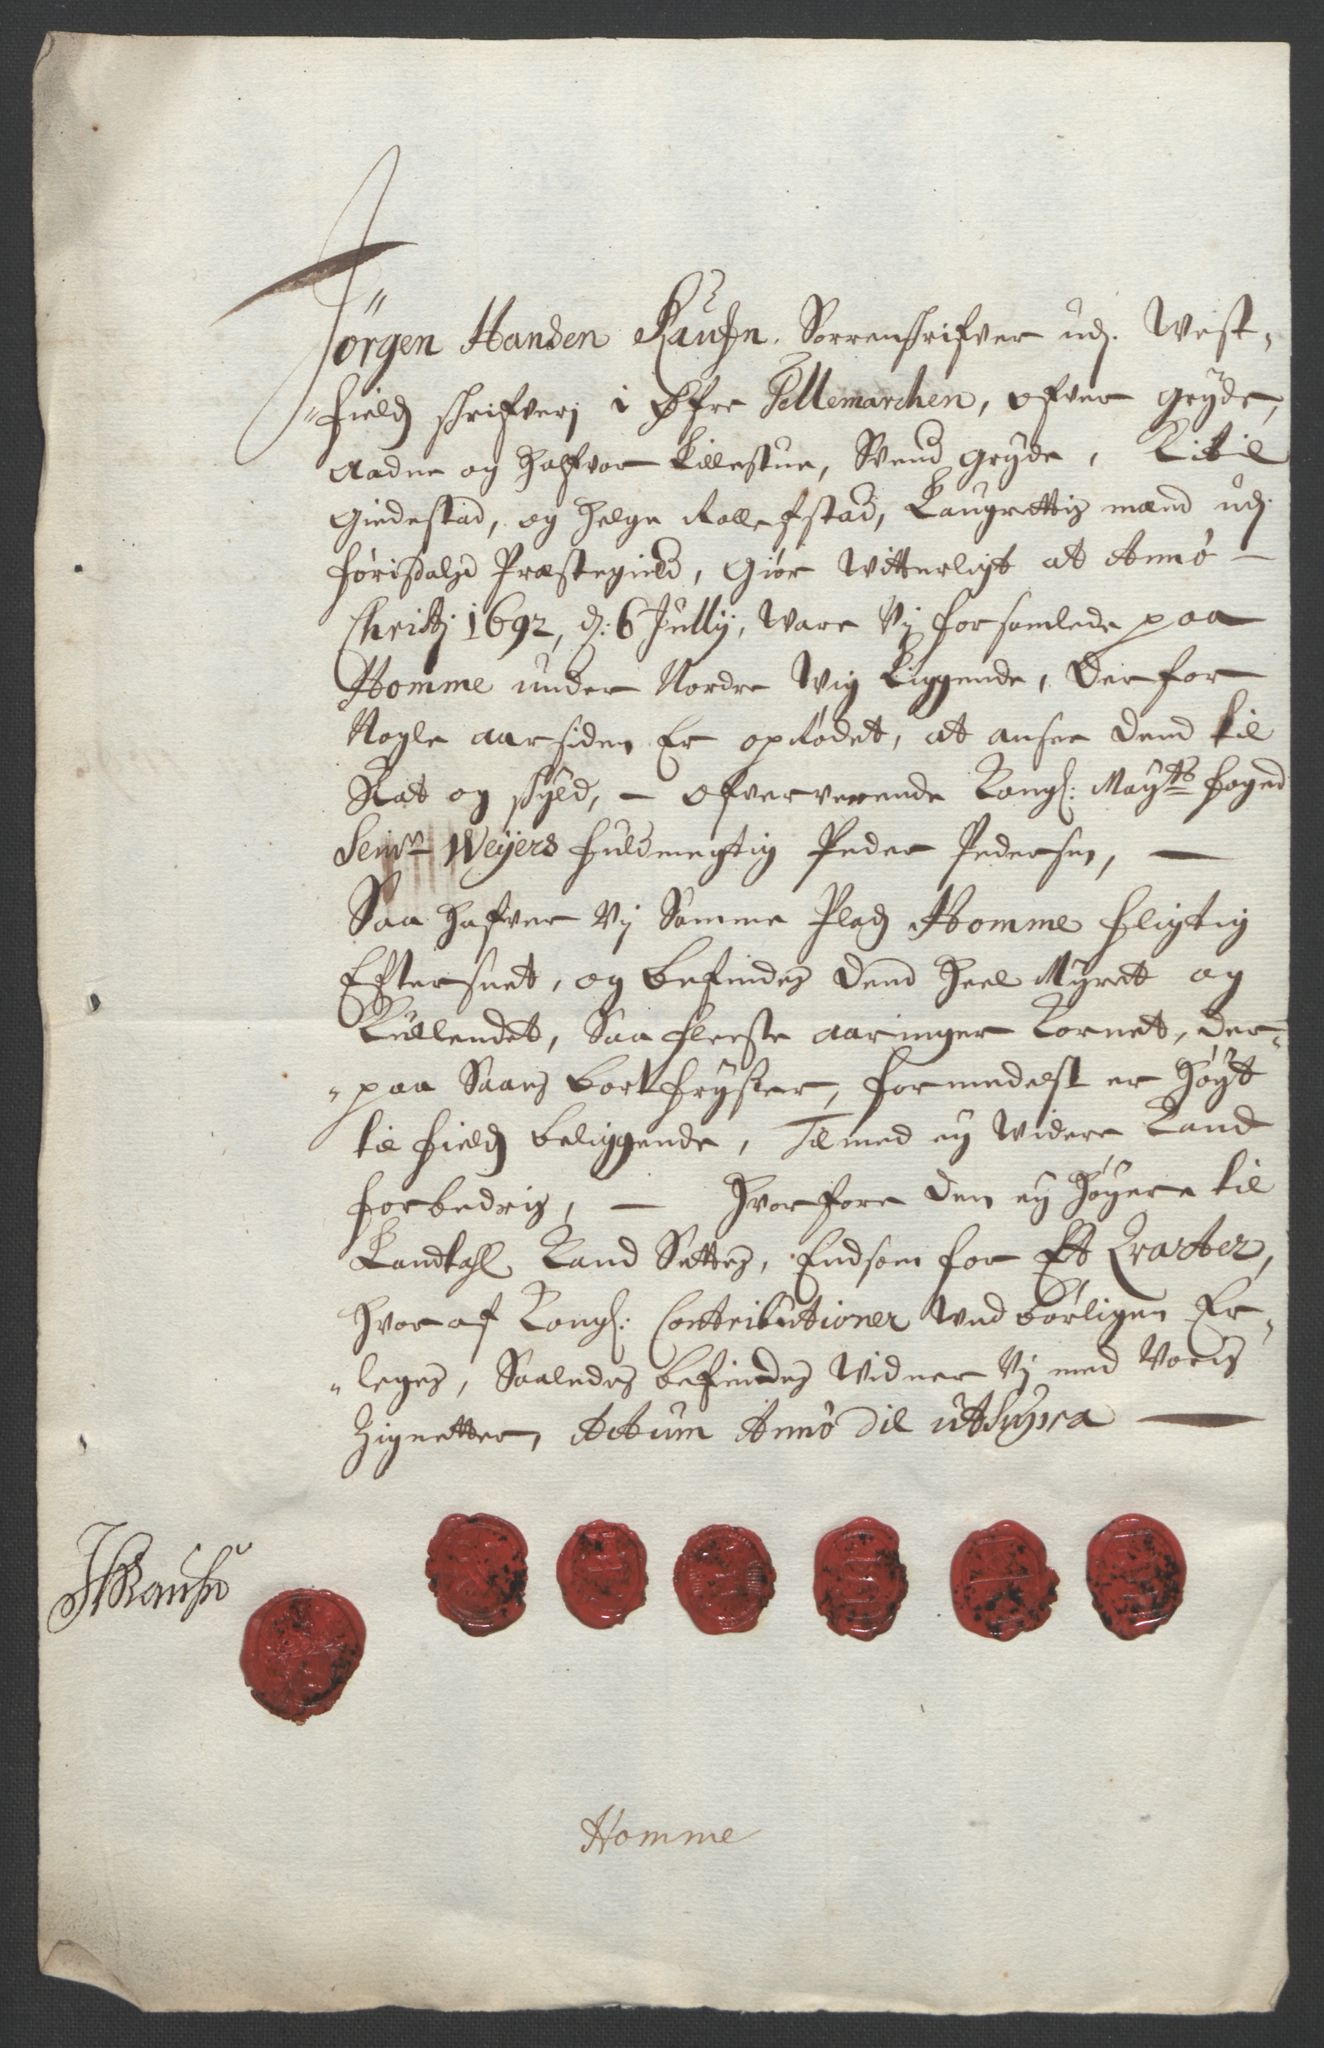 Jörgen Hansen Rauhn. Sorrenschrifver udj. West-
"field schrifverj i Øfre Tellemarchen, Ofver Gryde,
Aadne og Halfvor Lillestue, Svend Gryde, Kitil
Giedestad, og Helge Rollefstad, Laugrettis mænd udj
førisdalß Præstegield, Giør Witterligt at Anno
Christj 1692, d: 6 Jullij, Ware Vj forsamlede paa
Homme under Nordre Wig Liggende, Der for
Nogle aarsiden Er oprødet, at ansee dend til
Skat og skyld, - Ofververende Kongl: Maytts foged
Senr Weyers fuldmegtig Peder Pedersen, -
Saa hafver Vj Samme Pladz Homme fligtig
Eftersuet, og befindes dend heel Myret og
Kullendet, Saa fleeste aaringer Kornet, der-
"paa Saaes bortfryser, formedelst er høyt
til field beliggende, Tilmed ey Widere kand
forbedris, - Hvorfore den ey høyere til
Landtahl kand Settes, End som for Et Qvarter,
Hvor af Kongl: Contributioner Wed børligen Er-
"leges, Saaledes befindes Widner Vj med Voris
Zignetter, Actum Anno Die ut Supra -
JHRauhn
Homme